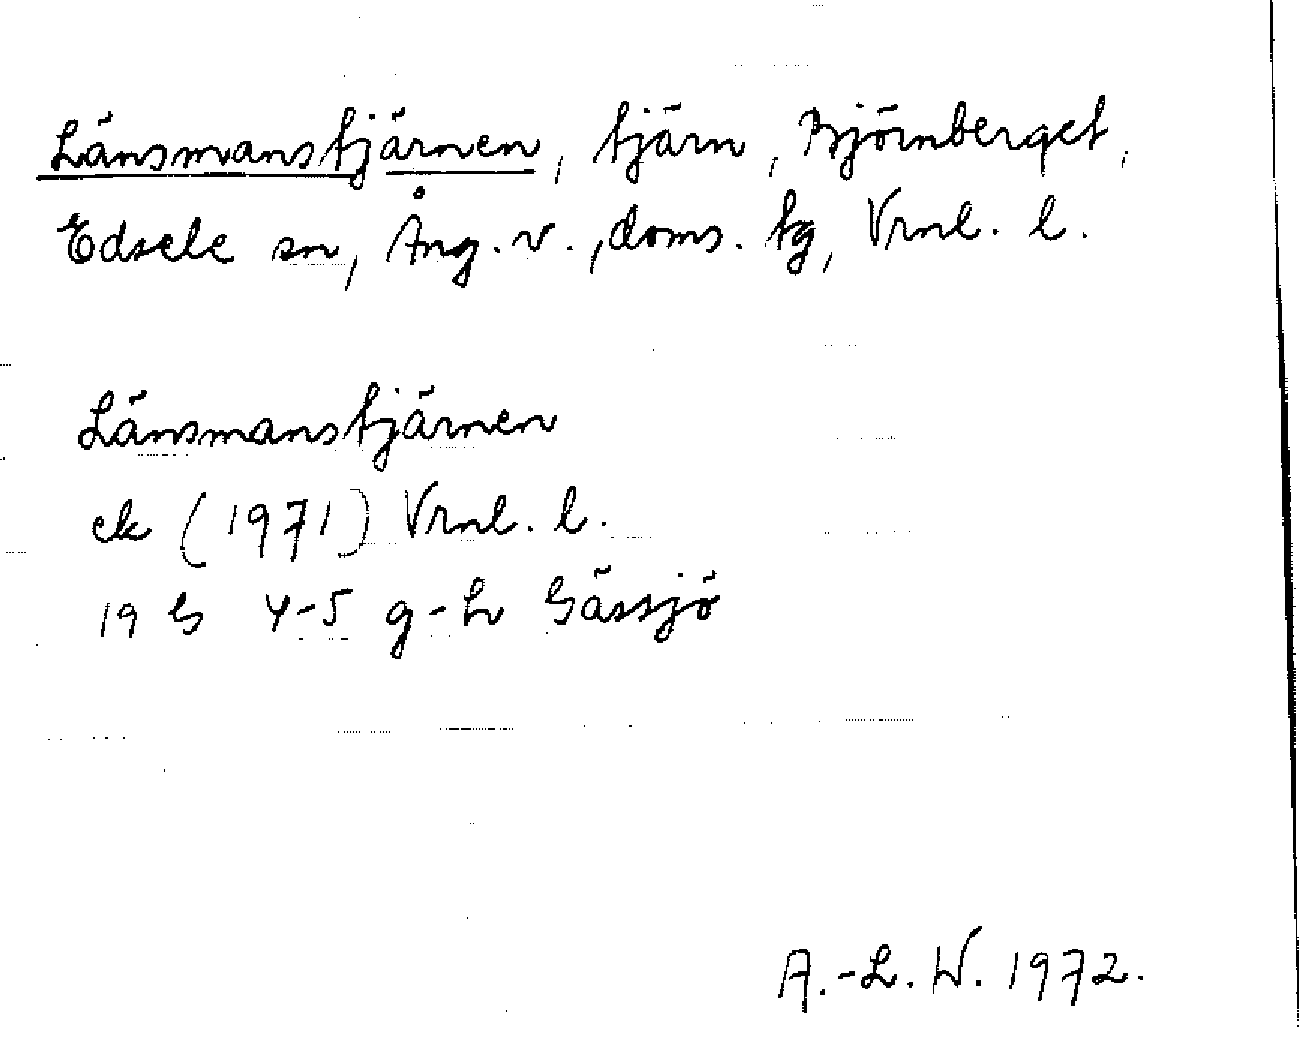 Länsmanstjärnen, tjärn, Björnberget,
Edsele sn, Ång. v., doms. tg, Vrnl. l.
Länsmanstjärnen
ek (1971) Vrnl. l.
19 G 4-5 g-h Gässjö
A.-L. W. 1972.